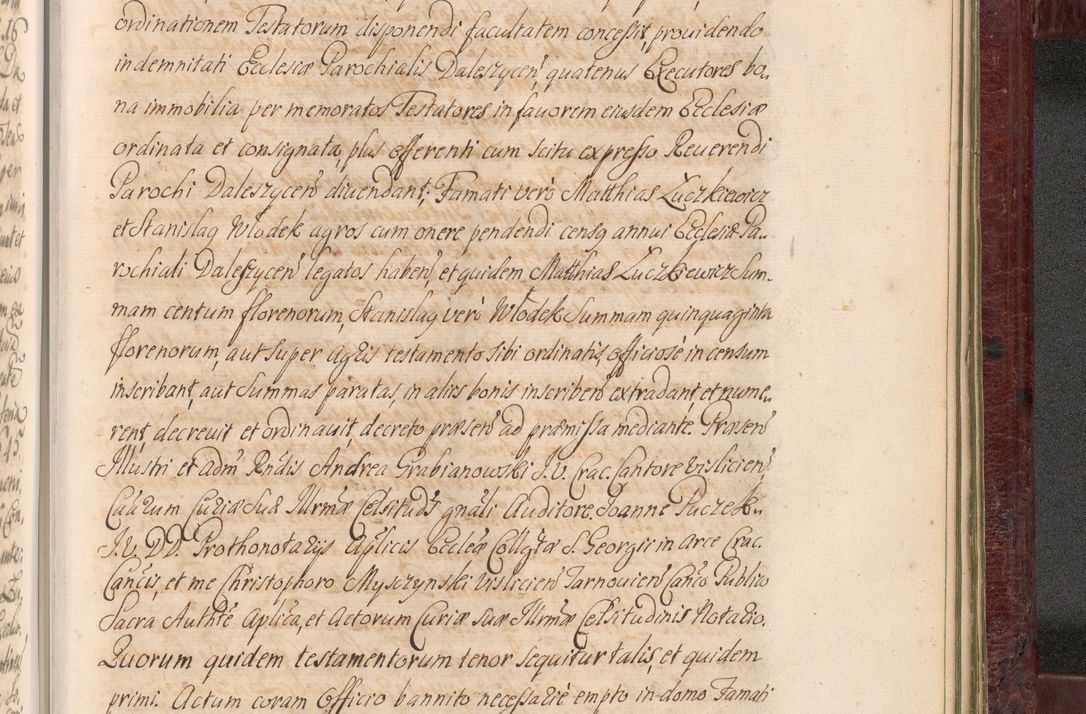 ordinationem Testatorum disponendi facultatem concessit, prouidendo
indemnitati Ecclesiæ Parochialis Daleszycen̄, quatenus Executores bo-
na immobilia per memoratos Testatores in fauorem eiusdem Ecclesiæ
ordinata et consignata, plus offerenti cum scitu expresso Reuerendi
Parochi Daleszycen̄ diuendant; Famati verò Matthias Łuczkiewicz
et Stanislaq Włodek agros cum onere pendendi censq annui Ecclesiæ Pa-
rochiali Daleszycen̄ legatos haben̄, et quidem Matthias Łuczkiewicz Sum-
mam centum florenorum, Stanislaq verò Włodek Summam quinquaginta
florenorum, aut super Agris testamento sibi ordinatis, officiosè in censum
inscribant, aut Summas paratas, in aliis bonis inscriben̄ extradant, et nume-
rent, decreuit et ordinauit, decreto præsen̄ ad præmissa mediante. Præsen̄
Illustri et Adm̄ Rn̄dis Andrea Grabianowski I. V. Crac. Cantore Vislicien̄
Caūrum Curiæ Suæ Illrm̄æ Celsitudīs gn̄ali Auditore. Joanne Puczek
I. V. DD. Prothonotariis Aplīcis Eccleæ Collgtæ S. Georgii in Arce Crac.
Can̄cis, et me Christophoro Mysczynski Vislicien̄ Tarnouien̄ Can̄co Publico
Sacra Authtē Aplīca, et Actorum Curiæ suæ Illrm̄æ Celsitudinis Notario.
Quorum quidem testamentorum tenor sequitur talis, et quidem
primi. Actum coram Officio bannito necessariè empto in domo Famati